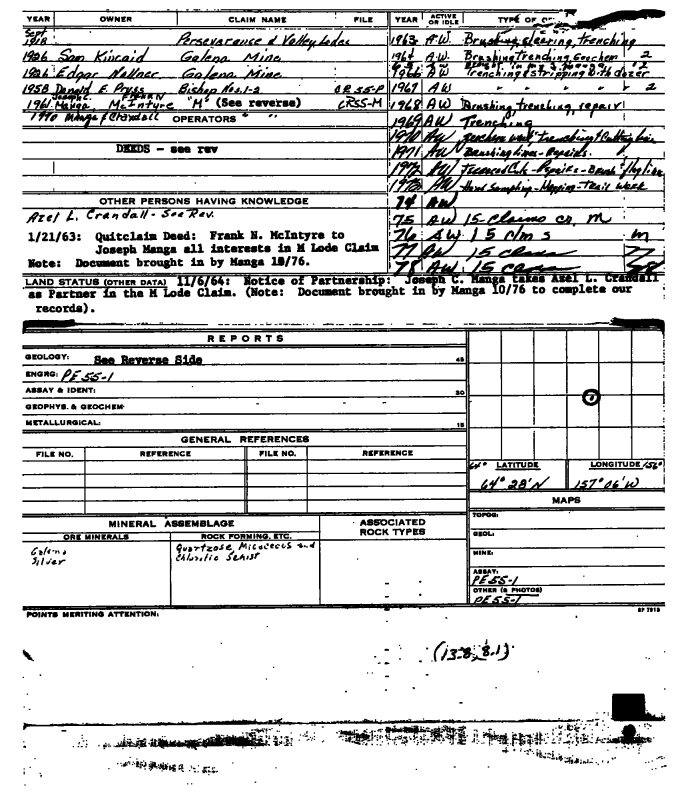 YEAR OWNER CLAIM NAME FILE YEAR ACTIVE OR IDLE TYPE OF
Sept 1918 Perseverance & Valley Lodes
1926 Sam Kincaid Galena Mine
1926 Edgar Wallace Galena Mine
1958 Donald E. Pruss Bishop Nos. 1-2 CR 55-P
1961 Joseph C. Manga, McIntyre "M" (See reverse) CR55-M
1970 Manga & Crandall OPERATORS " "
DEEDS - see rev
OTHER PERSONS HAVING KNOWLEDGE
Azel L. Crandall - See Rev.
1/21/63: Quitclaim Deed: Frank N. McIntyre to
Joseph Manga all interests in M Lode Claim
Note: Document brought in by Manga 10/76.
1963 A.W. Brushing, clearing, trenching
1964 A.W. Brushing Trenching Geochem 2
1966 A.W. Trenching & stripping with dozer
1967 A.W " " " " 2
1968 A.W Brushing trenching, repair
1969 A.W Trenching
1970 A.W.
1971 A.W Brushing lines - Repairs.
1972 A.W
1973 A.W Hand Sampling - Mapping - Trail work
74 A.W
75 A.W 15 Claims M
76 A.W 15 M
77 A.W 15 77
78 A.W. 15 78
LAND STATUS (OTHER DATA) 11/6/64: Notice of Partnership: Joseph C. Manga takes Axel L. Crandall
as Partner in the M Lode Claim. (Note: Document brought in by Manga 10/76 to complete our
records).
REPORTS
GEOLOGY: See Reverse Side 45
ENGRG: PE 55-1
ASSAY & IDENT: 30
GEOPHYS. & GEOCHEM:
METALLURGICAL: 15
GENERAL REFERENCES
FILE NO. REFERENCE FILE NO. REFERENCE
64° LATITUDE LONGITUDE /56°
64° 28' N 157° 06' W
MAPS
TOPOG:
GEOL:
MINE:
ASSAY:
PE 55-1
OTHER (& PHOTOS)
PE 55-1
MINERAL ASSEMBLAGE ASSOCIATED ROCK TYPES
ORE MINERALS ROCK FORMING, ETC.
Galena Quartzose, Micaceous and
Silver Chloritic Schist
POINTS MERITING ATTENTION:
(13.8, 8.1)